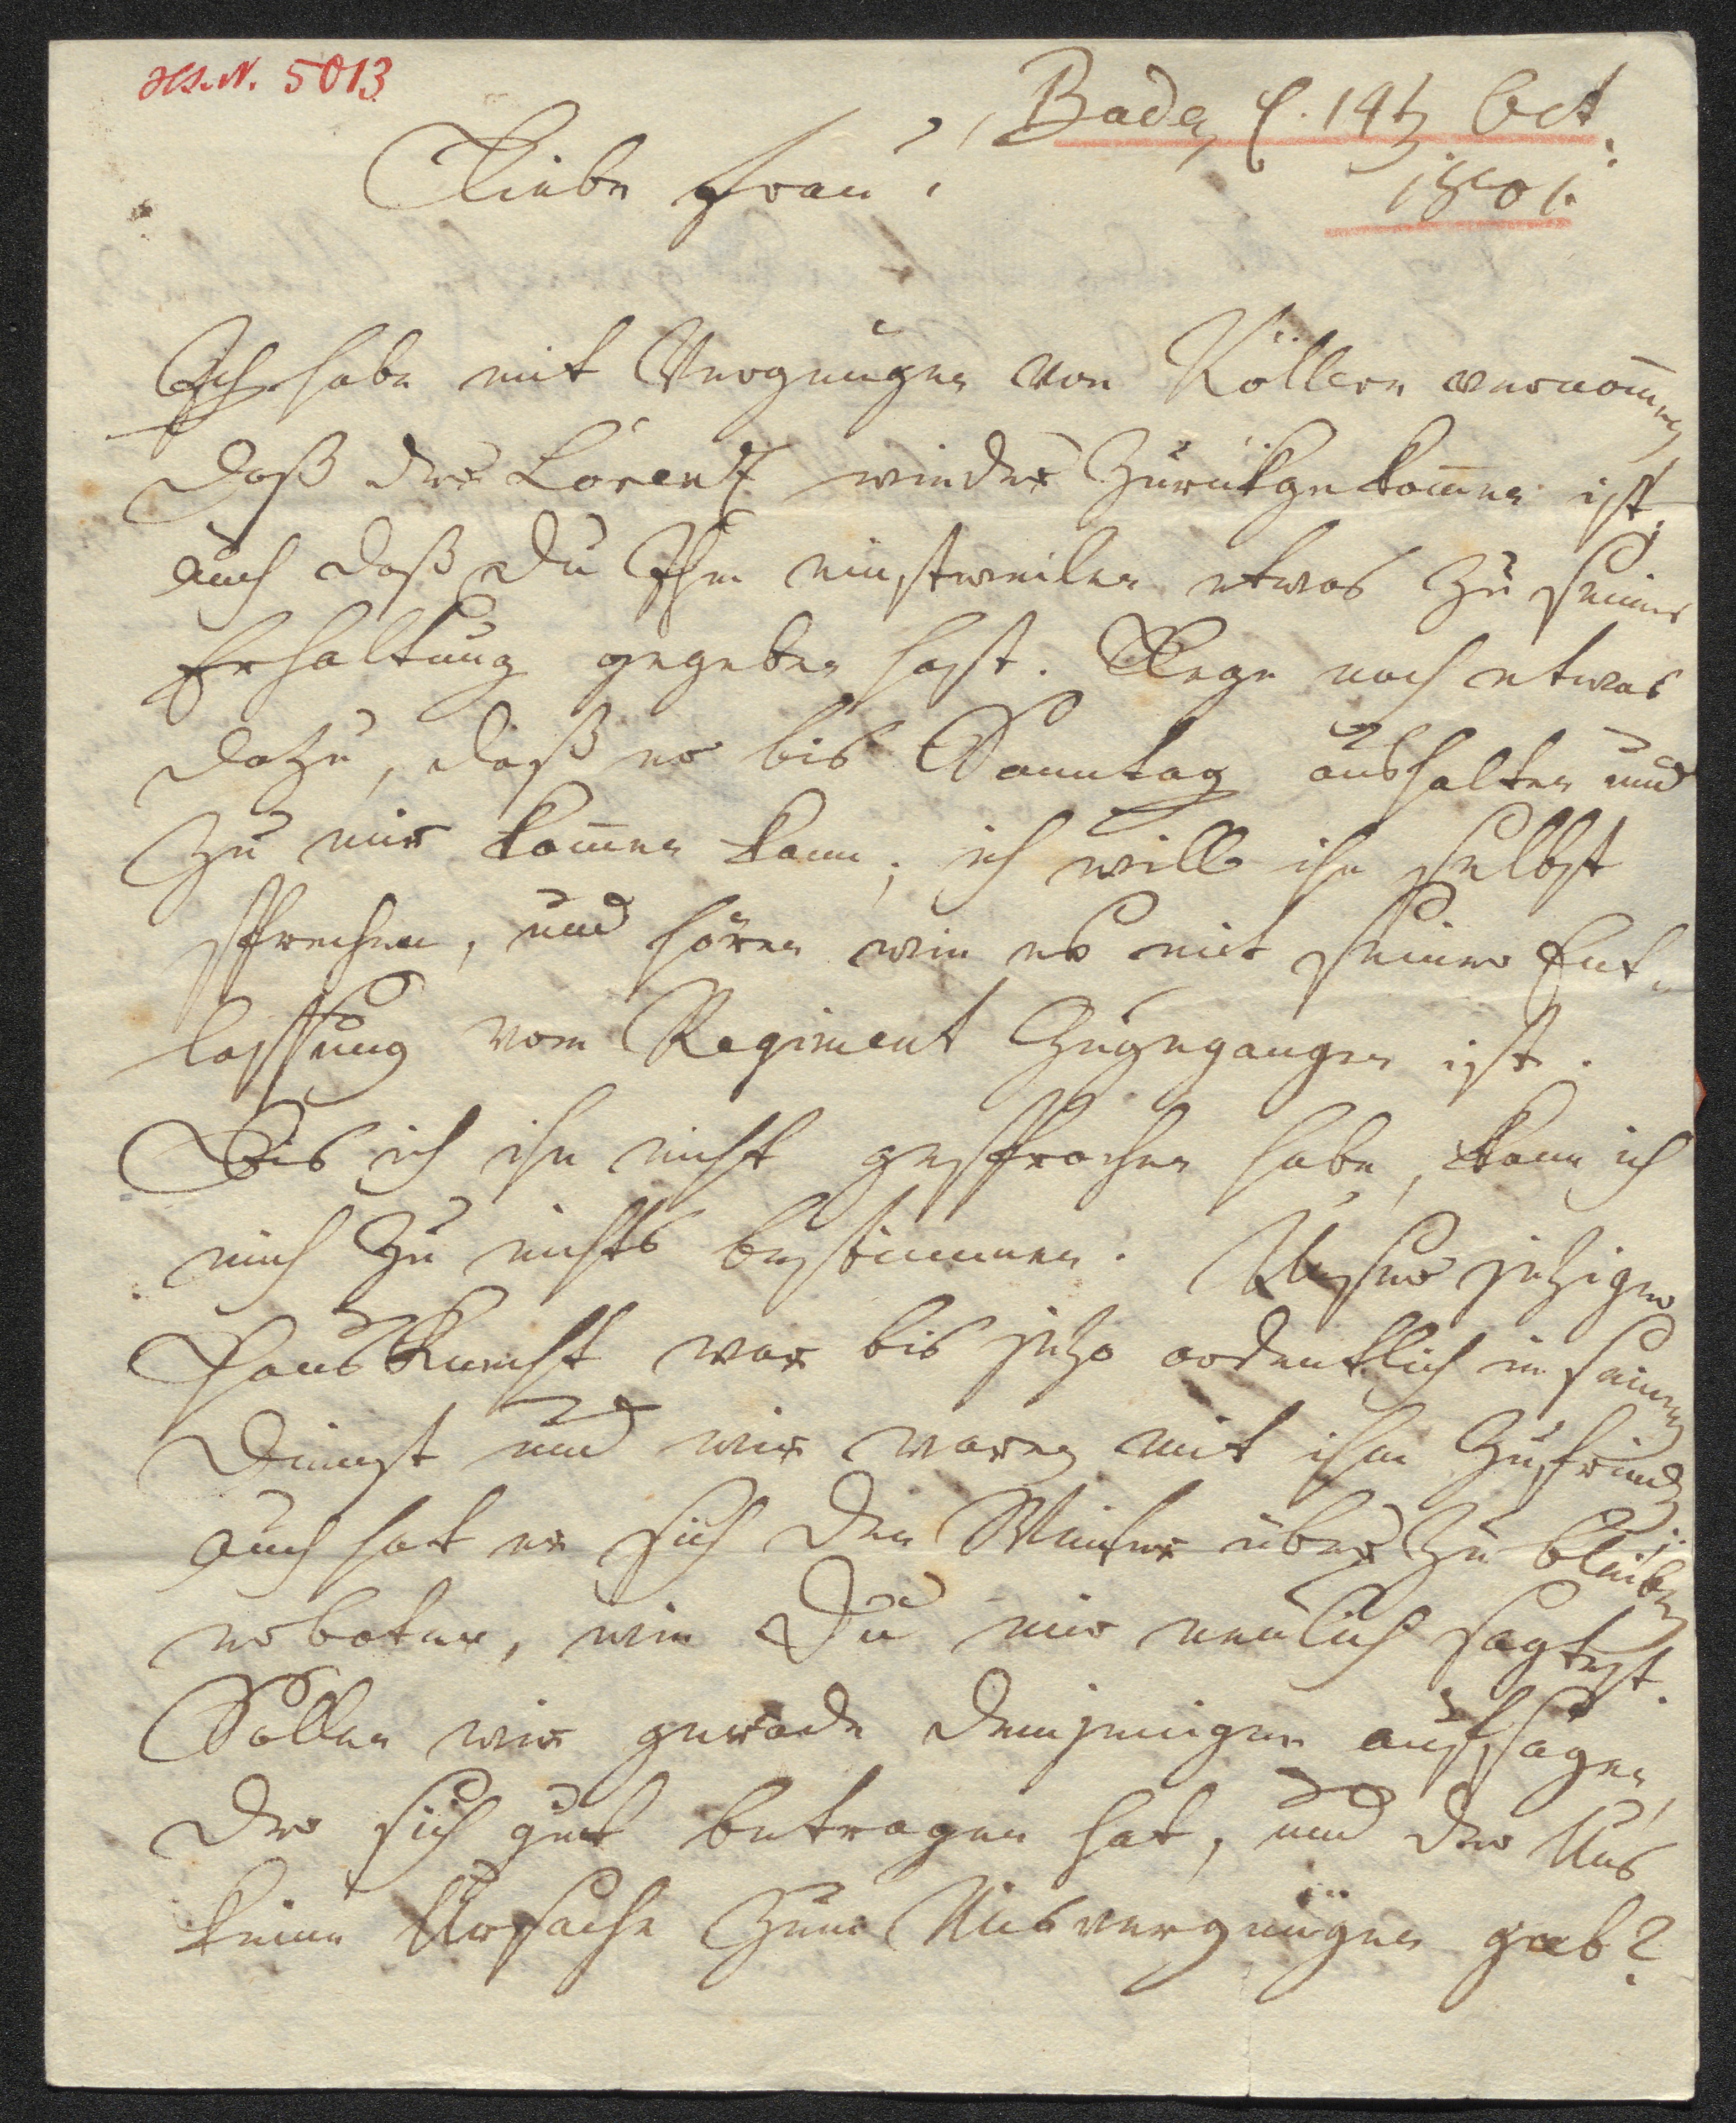 Hs. N. 5013
Baden d. 14t Oct.
Liebe Frau!
1801.
Ich habe mit Vergnügen von Köllern vernom̅en
daß der Lorenz wieder zurükgekom̅en ist,
auch daß du Ihm einstweilen etwas zu seiner
Erhaltung gegeben hast. Lege noch etwas
dazu, daß er bis Sonntag aushalten und
zu mir kom̅en kann; ich will ihn selbst
sprechen, und hören wie es mit seiner Ent-
lassung vom Regiment zugegangen ist.
Bis ich ihn nicht gesprochen habe, kann ich
mich zu nichts bestimmen. Unser jeziger
Hausknecht war bis jezo ordentlich in seinen
Dienst und wir waren mit ihm zufrieden
auch hat er sich den Winter über zu bleiben
erboten, wie Du mir neulich sagtest.
Sollen wir gerade demjenigen aufsagen,
der sich gut betragen hat, und der uns
keine Ursache zum Misvergnügen gab?